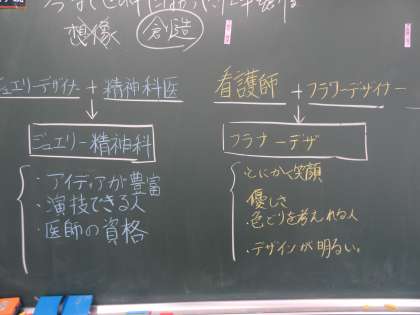 想像 創造
ジュエリーデザイナー + 精神科医
ジュエリー精神科
・アイディアが豊富
・演技できる人
・医師の資格
看護師 + フラワーデザイナー
フラナーデザ
・とにかく笑顔
優しさ
・色どりを考えれる人
・デザインが明るい。